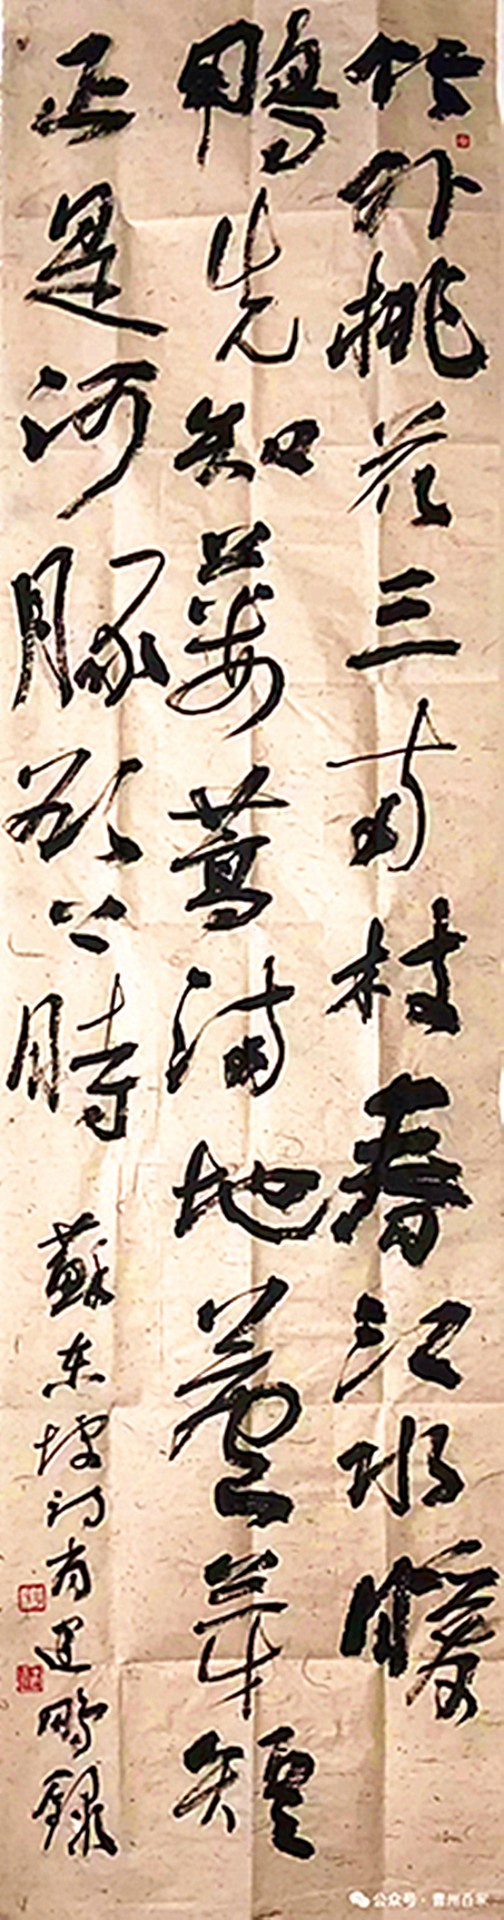 竹外桃花三两枝春江水暖
鸭先知蒌蒿满地芦芽短
正是河豚欲上时
苏东坡诗肖运鹏录
公众号·曹州百家